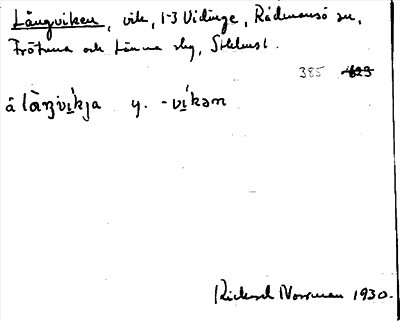 Långviken, vik, 1-3 Vidinge, Rådmansö sn,
Frötuna och Länna skg, Sthlms l.
385 623
å làŋviḱja y. -víkən
Rickard Norrman 1930.